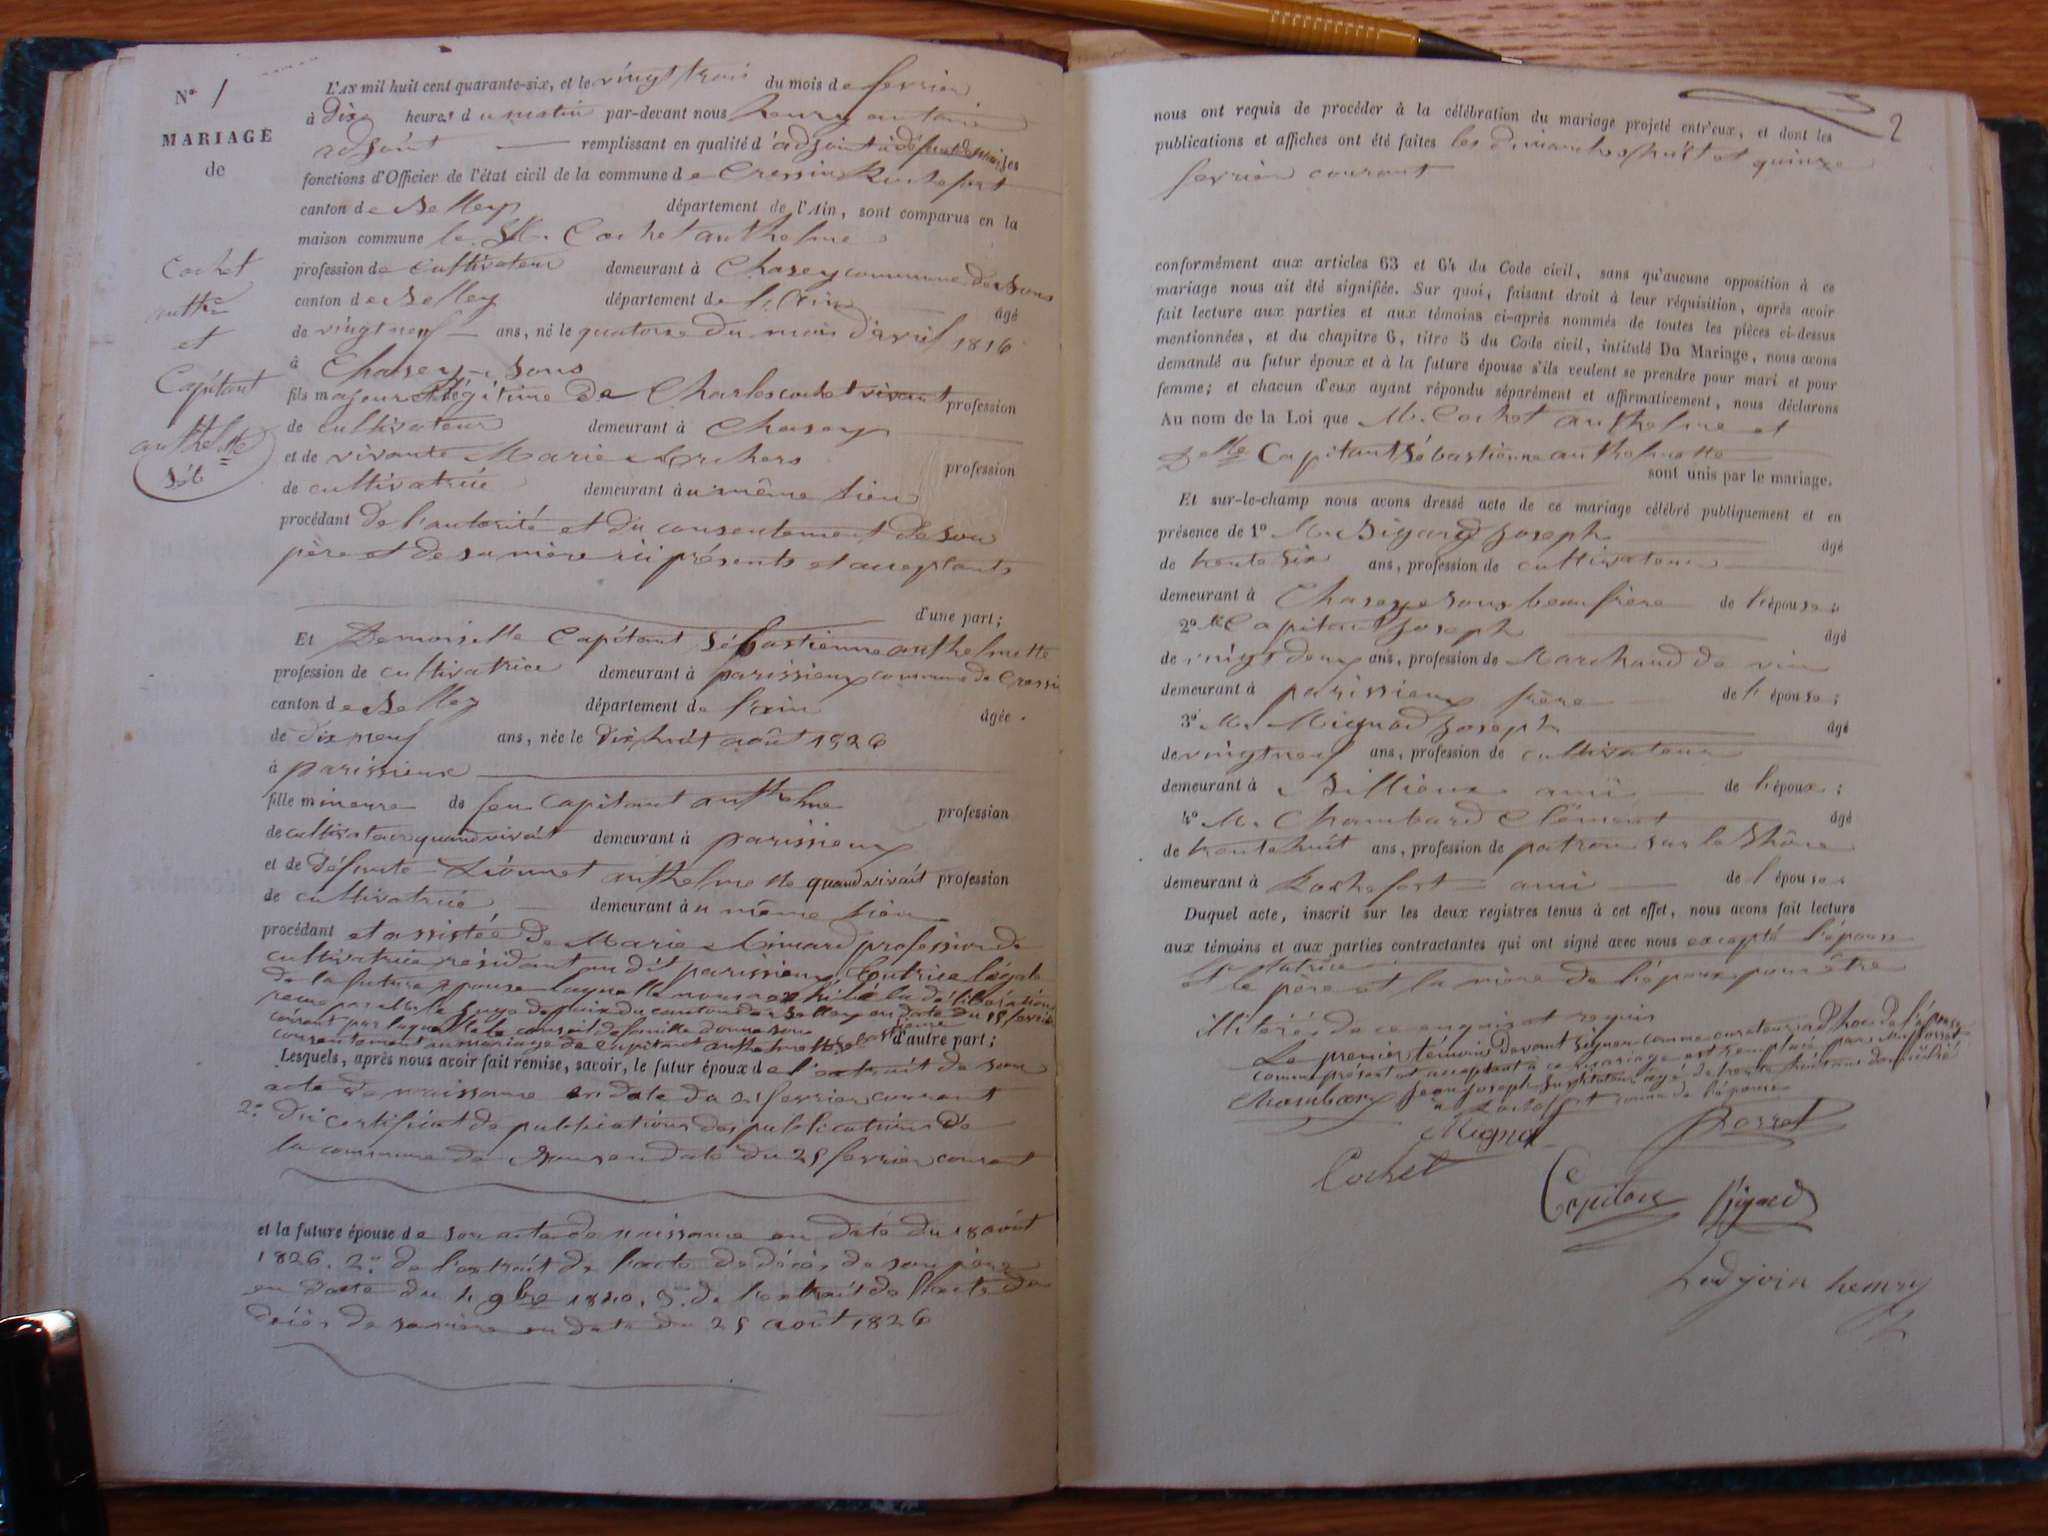 N° 1
MARIAGE
de
Cochet
anthe
et
Capitant
anthelmtte
Séb
L'AN mil huit cent quarante-six, et le vingt trois du mois de fevrier
à Dix heures du matin par-devant nous henry antoine
adjoint remplissant en qualité d'adjoint à défaut de maire les
fonctions d'Officier de l'état civil de la commune de Cressin Rochefort
canton de Belley département de l'Ain, sont comparus en la
maison commune le Sr. Cochet anthelme
profession de cultivateur demeurant à Chasey commune de Bons
canton de Belley département de l'Ain âgé
de vingt neuf ans, né le quatorze du mois d'avril 1816
à Chasey
fils majeur et légitime de Charles cochet vivant profession
de cultivateur demeurant à Chasey
et de vivante Marie profession
de cultivatrice demeurant au même lieu
procédant de l'autorité et du consentement de son
père et de sa mère ici présents et acceptants
d'une part;
Et Demoiselle Capitant Sébastienne anthelmette
profession de cultivatrice demeurant à parissieux commune de Cressin
canton de Belley département de l'ain âgée
de dix neuf ans, née le Dix huit août 1826
à parissieux
fille mineure de feu Capitant anthelme profession
de cultivateur quand vivait demeurant à parissieux
et de Défunte anthelmette quand vivait profession
de cultivatrice demeurant au même lieu
procédant et assistée de Marie profession de
cultivatrice résidant au dit parissieux tutrice légale
de la future épouse laquelle nous a la délibération
reçue par le juge de paix du canton de Belley en date du 15 fevrier
courant par laquelle le conseil de famille donne son
consentement au mariage de Capitant anthelmette sebastienne d'autre part;
Lesquels, après nous avoir fait remise, savoir, le futur époux de l'extrait de son
acte de naissance en date du 21 fevrier courant
2° du certificat de publications des publications de
la commune de en date du fevrier courant
et la future épouse de son acte de naissance en date du 18 août
1826. 2° de l'extrait de l'acte de décès de son père
en date du 4 9bre 1840, 3° de l'extrait de l'acte de
décès de sa mère en date du 25 août 1826
2
nous ont requis de procéder à la célébration du mariage projeté entr'eux, et dont les
publications et affiches ont été faites les dimanches huit et quinze
fevrier courant
conformément aux articles 63 et 64 du Code civil, sans qu'aucune opposition à ce
mariage nous ait été signifiée. Sur quoi, faisant droit à leur réquisition, après avoir
fait lecture aux parties et aux témoins ci-après nommés de toutes les pièces ci-dessus
mentionnées, et du chapitre 6, titre 5 du Code civil, intitulé Du Mariage, nous avons
demandé au futur époux et à la future épouse s'ils veulent se prendre pour mari et pour
femme; et chacun d'eux ayant répondu séparément et affirmativement, nous déclarons
Au nom de la Loi que M. Cochet anthelme et
Delle Capitant Sébastienne anthelmette
sont unis par le mariage.
Et sur-le-champ nous avons dressé acte de ce mariage célébré publiquement et en
présence de 1° M. Joseph âgé
de trente six ans, profession de cultivateur
demeurant à Chasey beau frère de l'épouse;
2° Capitant Joseph âgé
de vingt deux ans, profession de Marchand de vin
demeurant à parissieux frère de l'épouse;
3° M. Mignod Joseph âgé
de vingt neuf ans, profession de cultivateur
demeurant à ami de l'époux;
4° M. Chambard Clément âgé
de trente huit ans, profession de patron sur le Rhône
demeurant à Rochefort ami de l'épouse
Duquel acte, inscrit sur les deux registres tenus à cet effet, nous avons fait lecture
aux témoins et aux parties contractantes qui ont signé avec nous excepté l'épouse
tutrice
et le père et la mère de l'époux pour être
illitérés de ce enquis et requis
Le premier témoin devant signer comme curateur ad hoc de l'épouse
comme présent et acceptant à ce mariage est remplacé par
Jean Joseph instituteur âgé de trente huit ans domicilié
à Rochefort de l'épouse
Mignod
Cochet
Capitan
Ladjoin henry